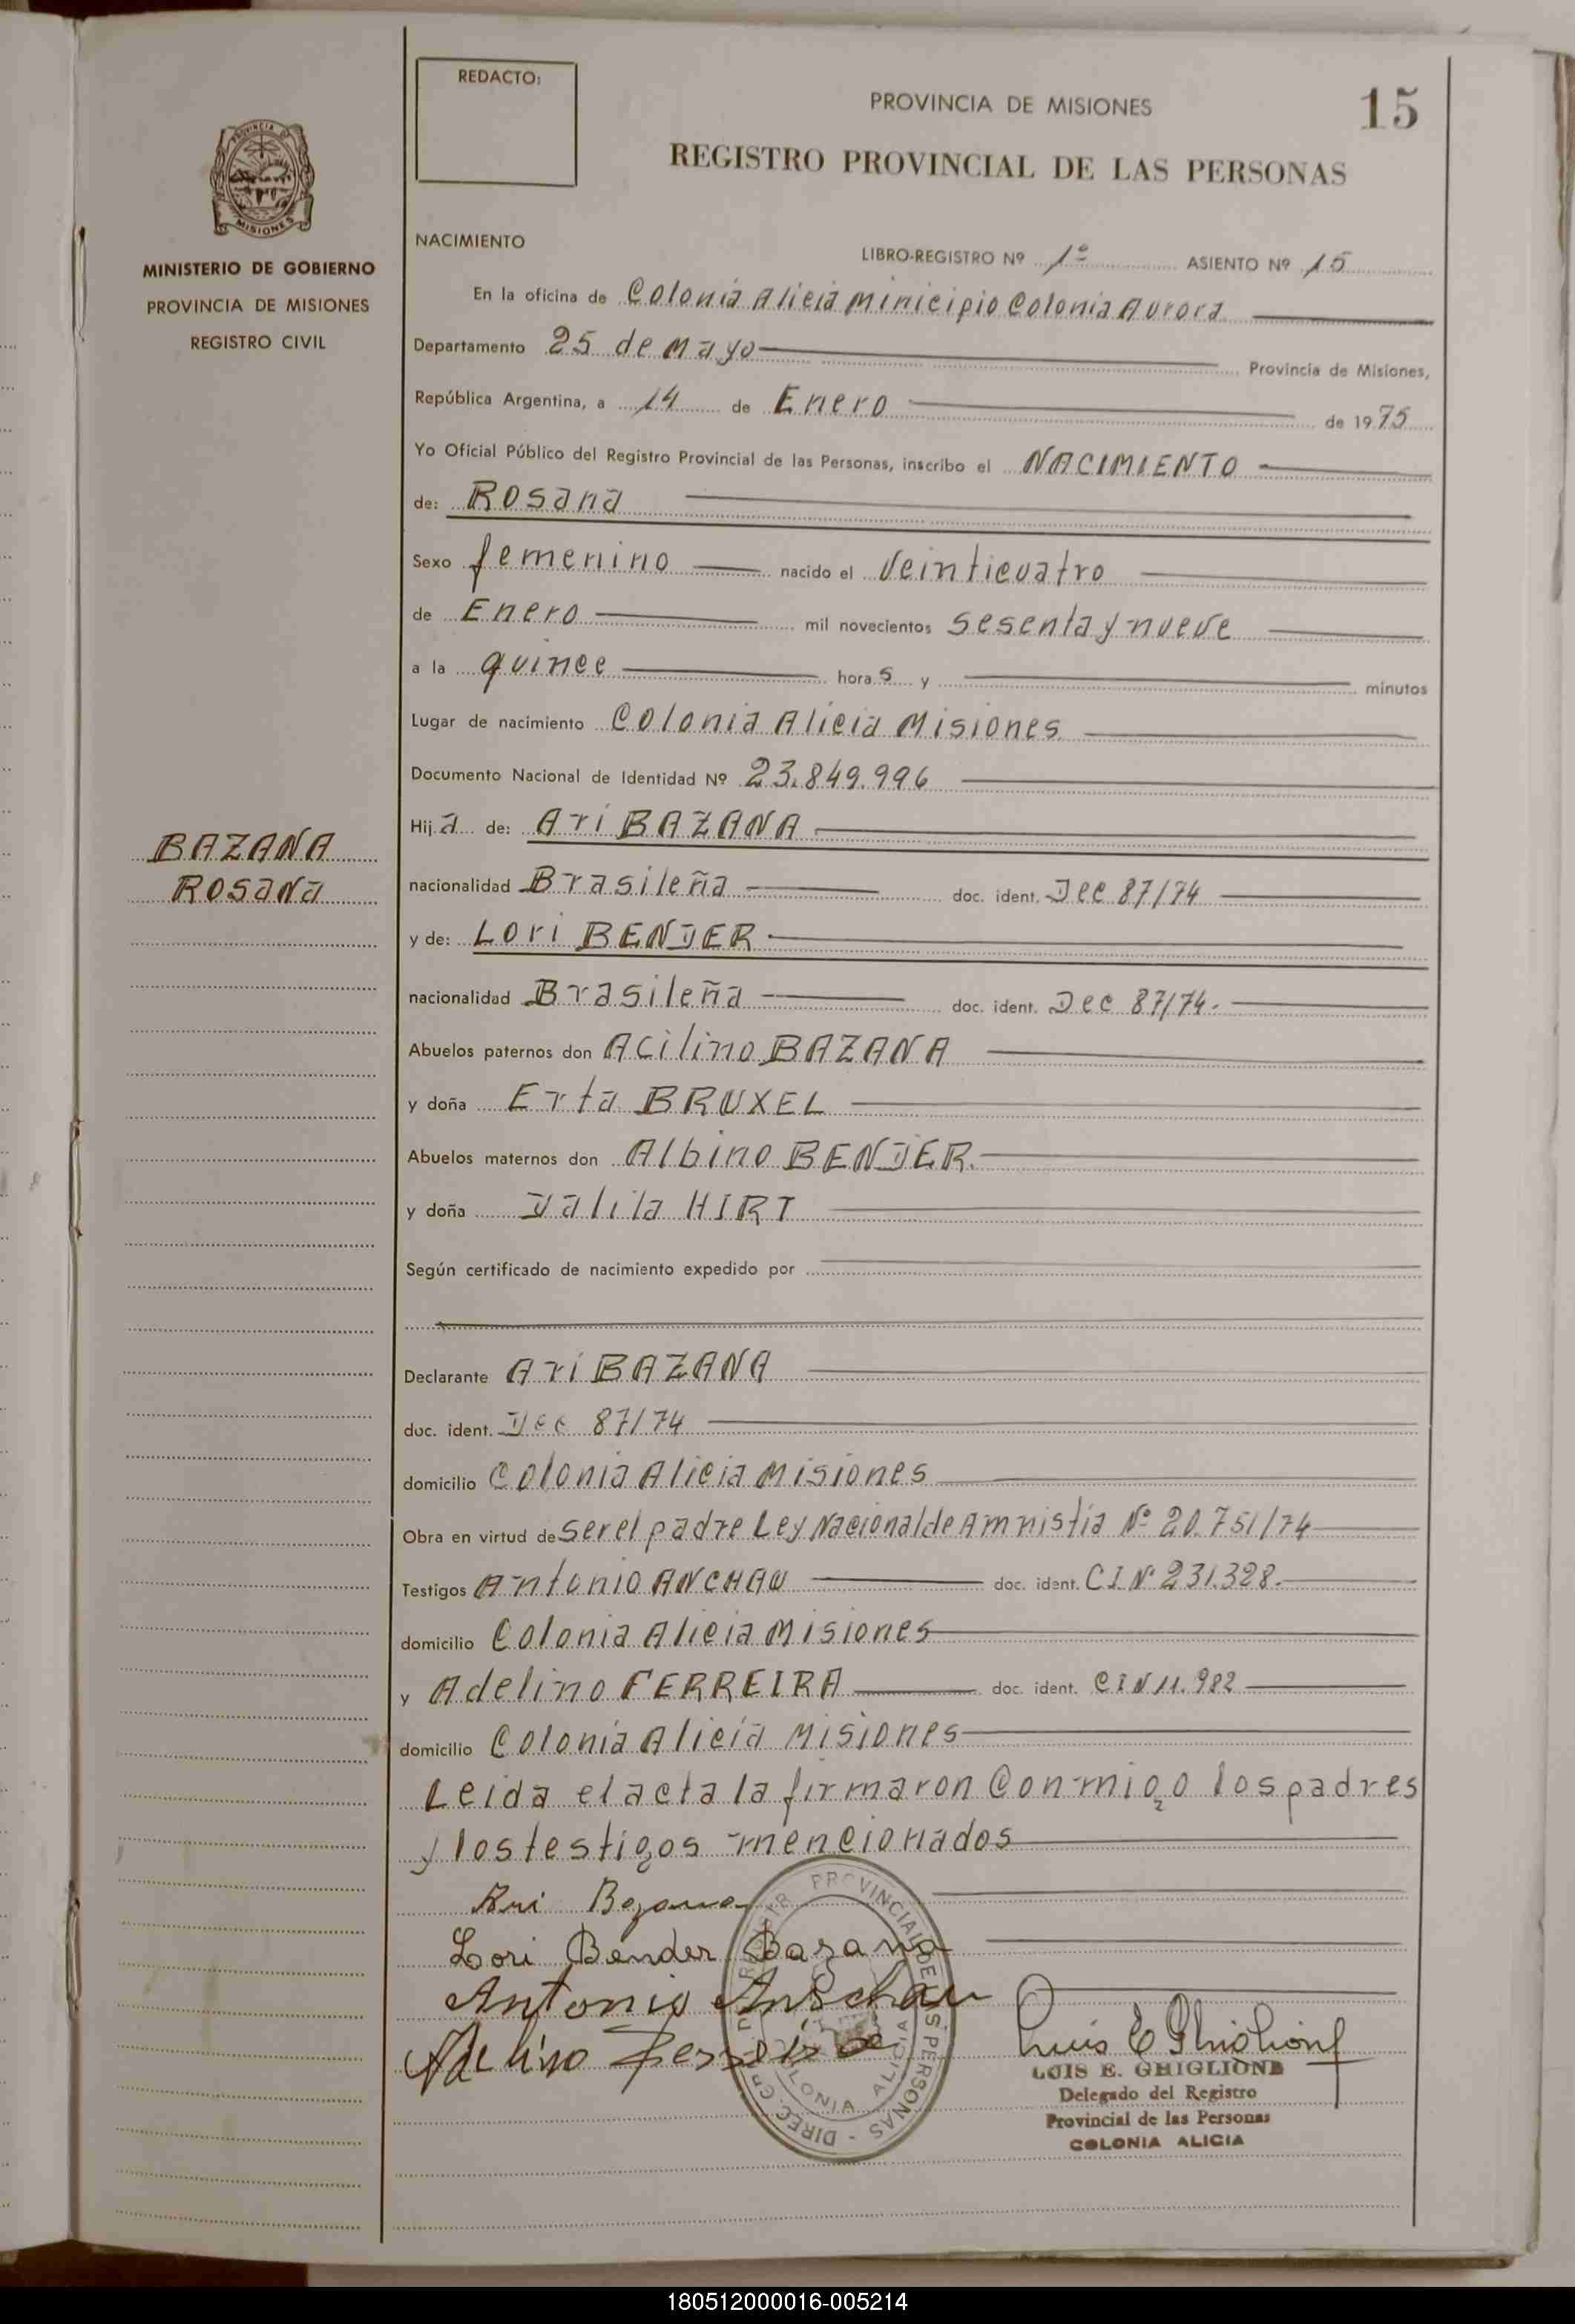 REDACTO:
PROVINCIA DE MISIONES
15
REGISTRO PROVINCIAL DE LAS PERSONAS
PROVINCIA DE
MISIONES
MINISTERIO DE GOBIERNO
PROVINCIA DE MISIONES
REGISTRO CIVIL
BAZANA
Rosana
NACIMIENTO
LIBRO-REGISTRO Nº 1º ASIENTO Nº 15
En la oficina de Colonia Alicia Minicipio Colonia Aurora
Departamento 25 de Mayo Provincia de Misiones,
República Argentina, a 14 de Enero de 1975
Yo Oficial Público del Registro Provincial de las Personas, inscribo el NACIMIENTO
de: Rosana
Sexo femenino nacido el Veinticuatro
de Enero mil novecientos sesenta y nueve
a la quince horas y minutos
Lugar de nacimiento Colonia Alicia Misiones
Documento Nacional de Identidad Nº 23.849.996
Hija de: Ari BAZANA
nacionalidad Brasileña doc. ident. Dec 87/74
y de: Lori BENDER
nacionalidad Brasileña doc. ident. Dec 87/74.
Abuelos paternos don Acilino BAZANA
y doña Erta BRUXEL
Abuelos maternos don Albino BENDER.
y doña Dalila HIRT
Según certificado de nacimiento expedido por
Declarante Ari BAZANA
doc. ident. Dec 87/74
domicilio Colonia Alicia Misiones
Obra en virtud de ser el padre Ley Nacional de Amnistia Nº 20.751/74
Testigos Antonio ANCHAU doc. ident. C I Nº 231.328.
domicilio Colonia Alicia Misiones
y Adelino FERREIRA doc. ident. C I N 11.982
domicilio Colonia Alicia Misiones
Leida el acta la firmaron Conmigo los padres
y los testigos mencionados
Ari Bazana
Lori Bender Bazana
Antonio Anschau
Adelino Ferreira
Luis E Ghiglione
LUIS E. GHIGLIONE
Delegado del Registro
Provincial de las Personas
COLONIA ALICIA
PROVINCIAL DE LAS PERSONAS - DIREC. GR.
COLONIA ALICIA
180512000016-005214